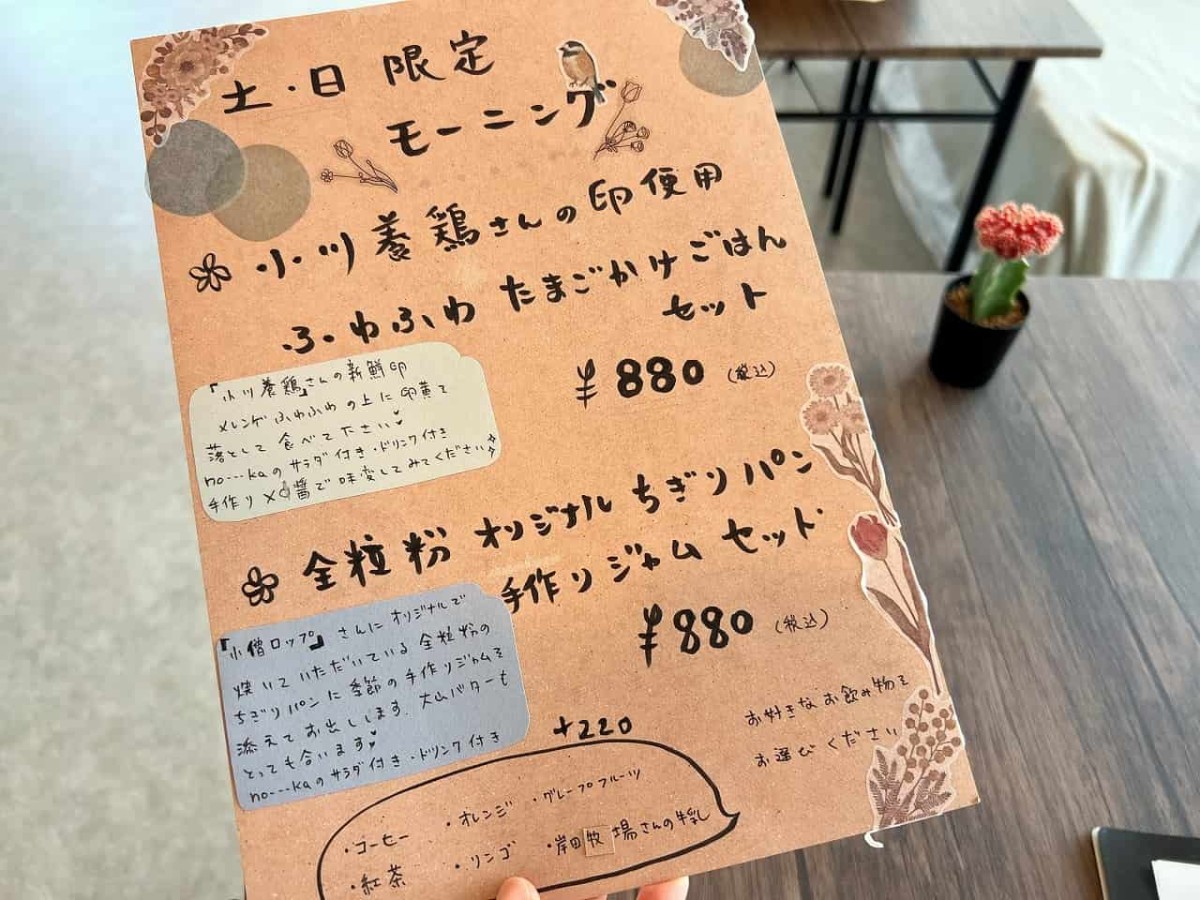 土・日 限定
モーニング
小川養鶏さんの卵使用
ふわふわ たまごかけごはん
セット
¥880 (税込)
「小川養鶏」さんの新鮮卵
メレンゲふわふわの上に卵黄を
落として食べて下さい♥
no---kaのサラダ付き・ドリンク付き
手作り 醤で味変してみてください
全粒粉 オリジナル ちぎりパン
手作りジャム セット
¥880 (税込)
『小僧ロップ』さんにオリジナルで
焼いていただいている全粒粉の
ちぎりパンに季節の手作りジャムを
添えてお出しします。大山バターも
とっても合います♥
no---kaのサラダ付き・ドリンク付き
お好きなお飲み物を
お選びください
+220
・コーヒー ・オレンジ ・グレープフルーツ
・紅茶 ・リンゴ ・岸田牧場さんの牛乳